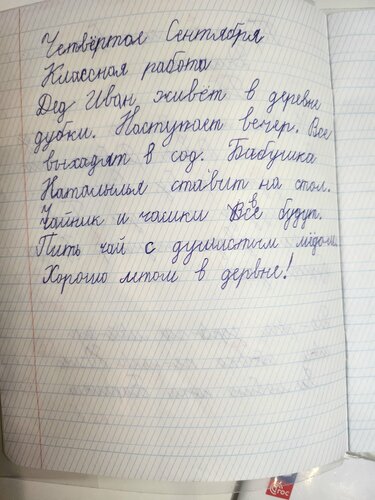 Четвёртое Сентября
Классная работа
Дед Иван живёт в деревни
дубки. Наступает вечер. Все
выхадят в сод. Бабушка
Наталылья ставит на стол.
Чайник и чашки Все будут.
Пить чай с душистым мёдом
Хорошо летом в дервне!
ГОС